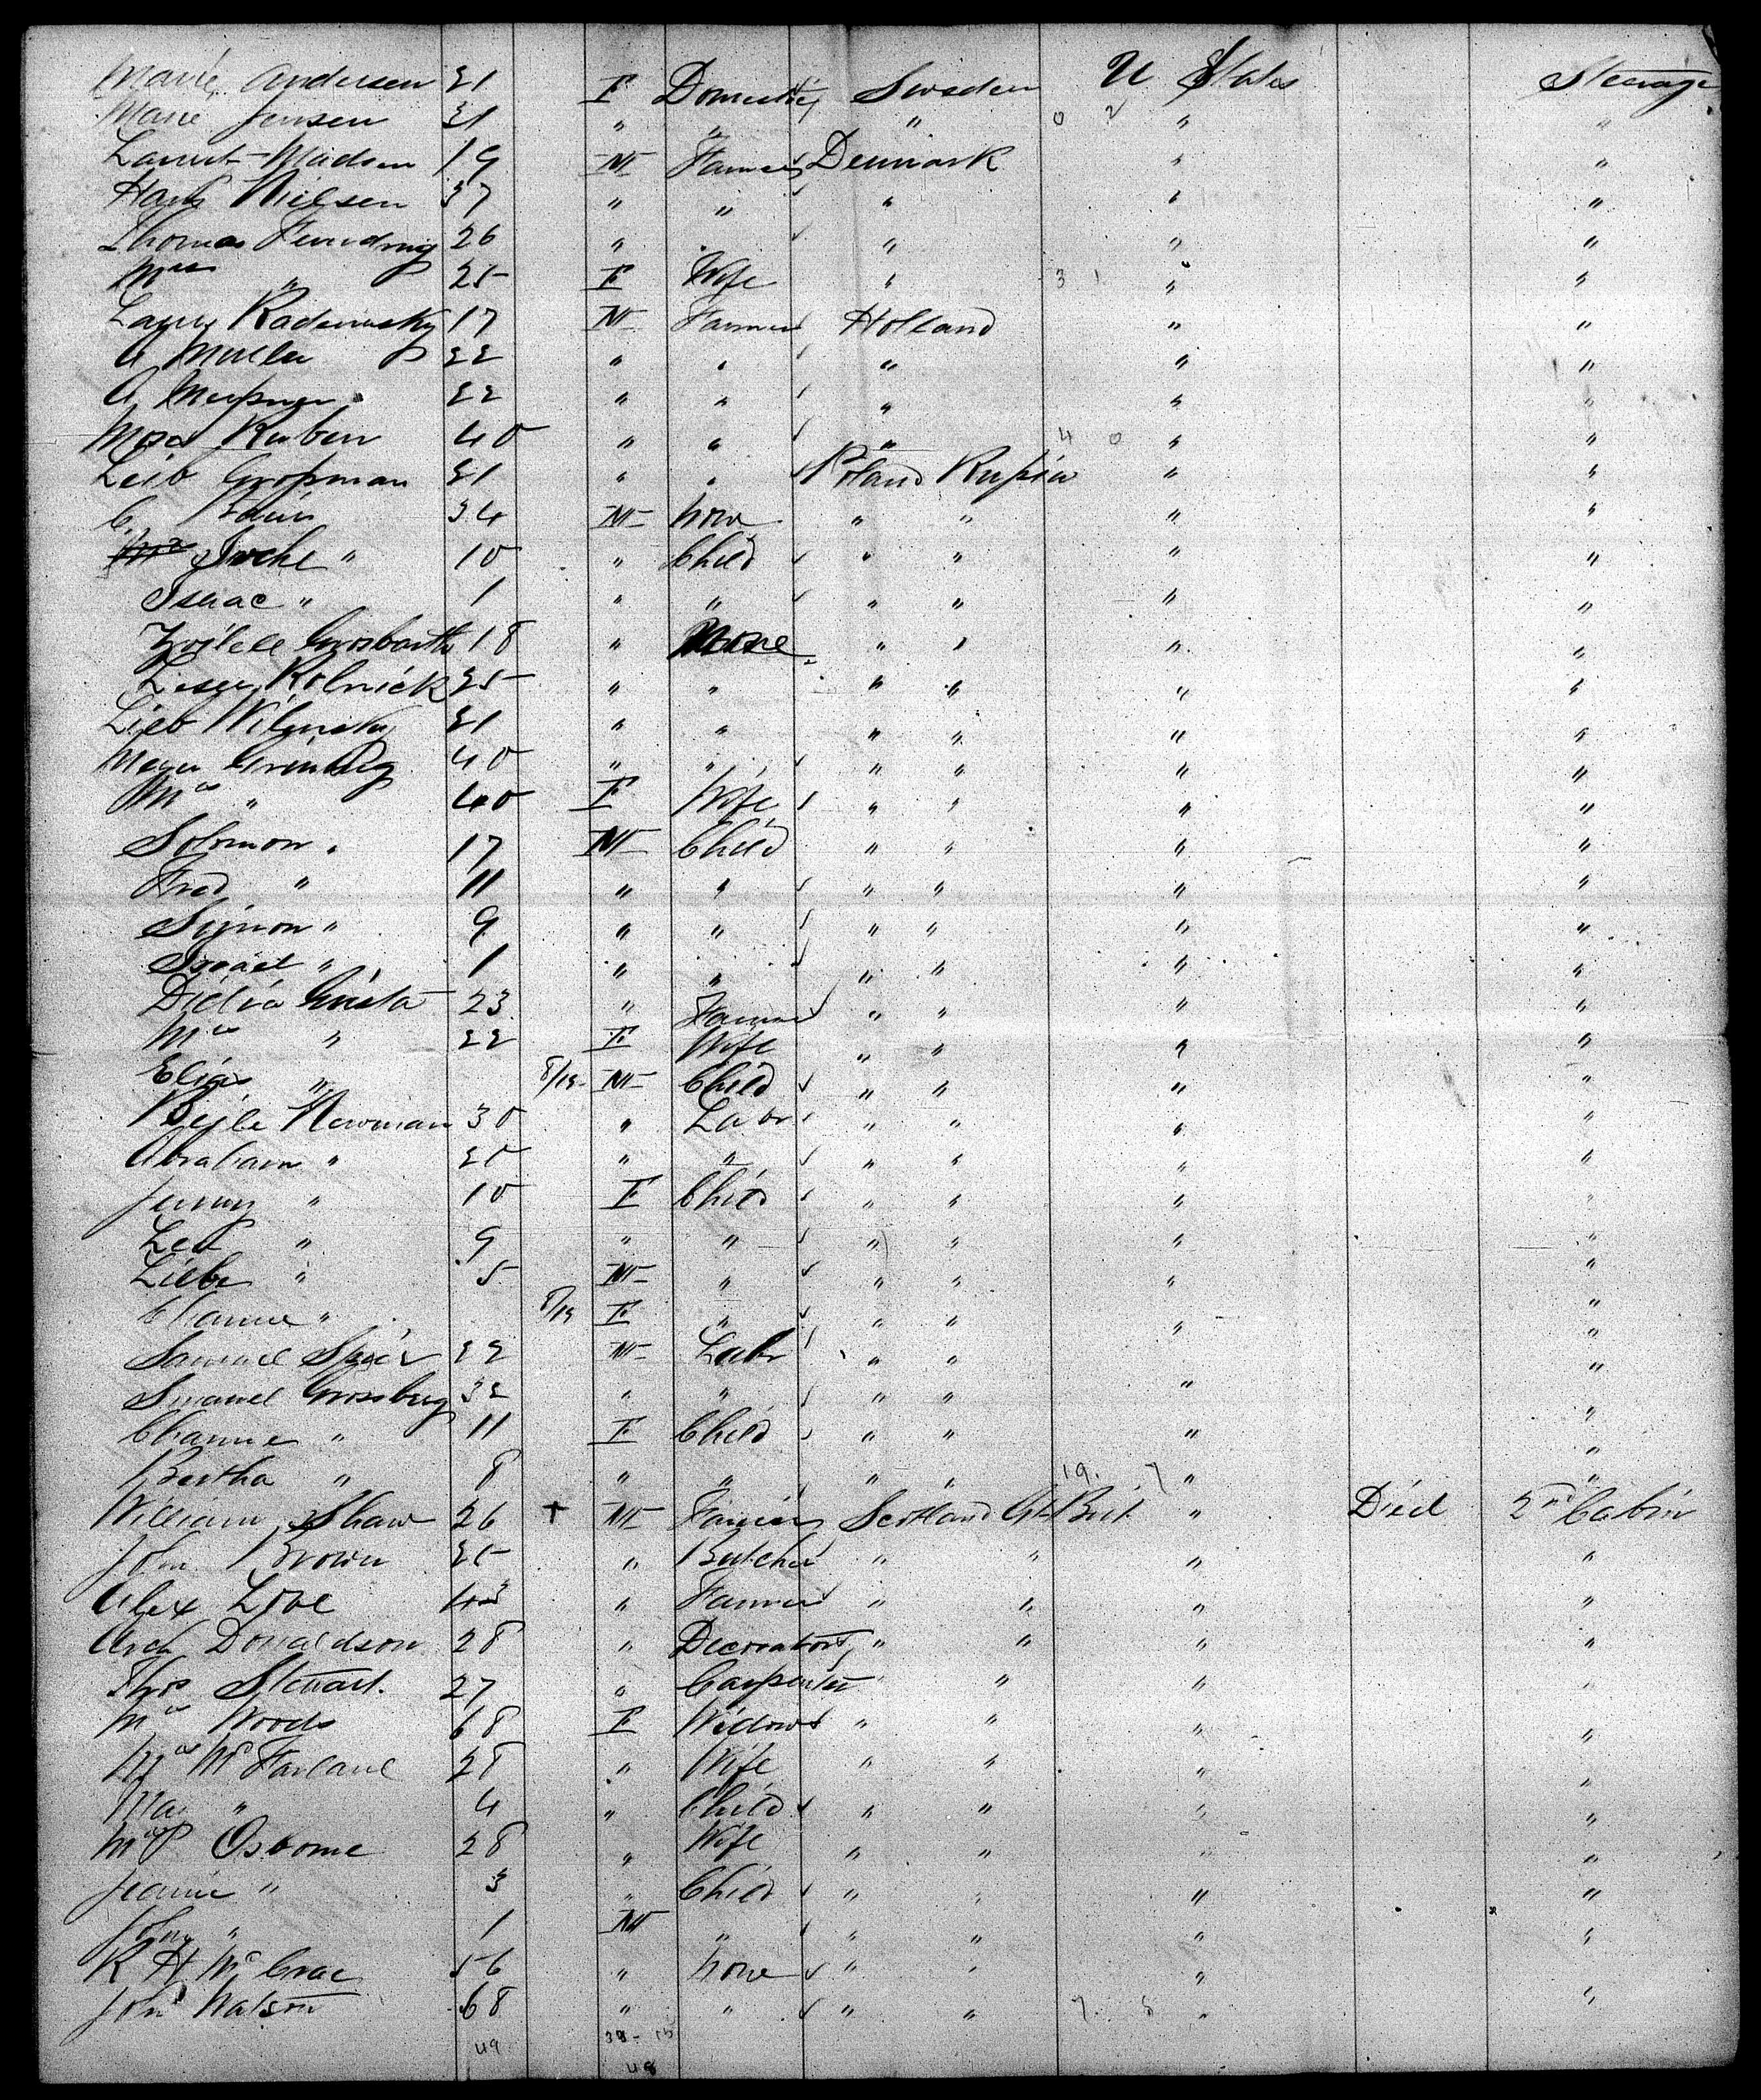 Marie Andersen 21 F Domestic Sweden U States Steerage
Marie Jensen 21 " " " 0 2 " "
Madsen 19 M Farmer Denmark " "
Hans Nielsen 37 " " " " "
Thomas 26 " " " " "
Mrs " 25 F Wife " 3 1 " "
17 M Farmer Holland " "
A Muller 22 " " " " "
A 22 " " " " "
Ruben 40 " " " 4 0 " "
Leib Großman 21 " " Poland Rußia " "
C. 34 M None " " " "
" 10 " Child " " " "
Isaac " 1 " " " " " "
18 " None " " " "
Kolnick 25 " " " " " "
Lieb Wilensky 21 " " " " " "
Meyer 40 " " " " " "
Mrs " 40 F Wife " " " "
Solomon " 17 M Child " " " "
Fred " 11 " " " " " "
Symon " 9 " " " " " "
Israel " 1 " " " " " "
23 " Farmer " " " "
Mrs " 22 F Wife " " " "
Elias " 8/12 M Child " " " "
Bejle Newman 30 " Labr " " " "
Abraham " 20 " " " " " "
Jenny " 10 F Child " " " "
" 9 " " " " " "
Liebe " 5 M " " " " "
Channe " 8/12 F " " " " "
Samuel 22 M Labr " " " "
Grossberg 32 " " " " " "
Channe " 11 F Child " " " "
Bertha " 8 " " " " 19. 7 " "
William Shaw 26 + M Farmer Scotland Gt Brit. " Died 2nd Cabin
John Brown 25 " Butcher " " " "
Alex Love 43 " Farmer " " " "
Arch Donaldson 28 " Decorator " " " "
Thos Stewart. 27 " Carpenter " " " "
Mrs Woods 68 F Widow " " " "
Mrs McFarlane 28 " Wife " " " "
May " 4 " Child " " " "
Mrs Osborne 28 " Wife " " " "
Jeanie " 3 " Child " " " "
John " 1 M " " " " "
R H McCrae 56 " None " " " "
John Watson 68 " " " " 7. 5 " "
49 38-
48